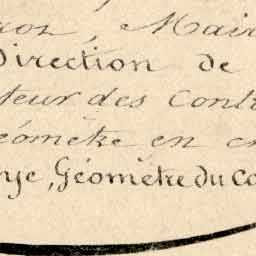 roz, Mair
Direction de
teur des Contr
éomètre en c
nje, Géomètre du Ca